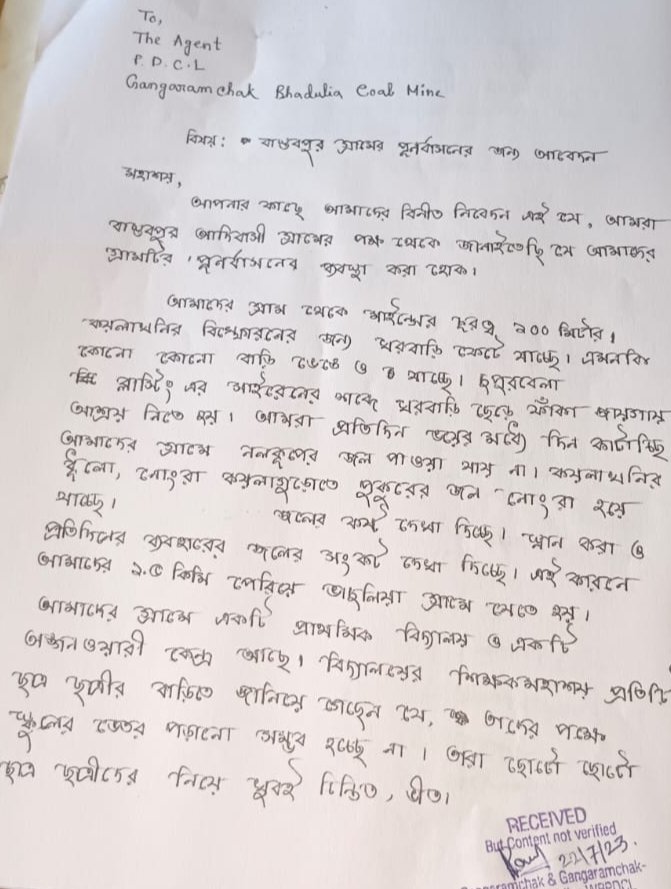 To,
The Agent
P. D. C. L
Gangaramchak Bhadulia Coal Mine
বিষয় : বাস্তবপুর গ্রামের পুনর্বাসনের জন্য আবেদন
মহাশয়,
আপনার কাছে আমাদের বিনীত নিবেদন এই যে, আমরা
বাস্তবপুর আদিবাসী গ্রামের পক্ষ থেকে জানাইতেছি যে আমাদের
গ্রামটির পুনর্বাসনের ব্যবস্থা করা হোক।
আমাদের গ্রাম থেকে মাইন্সের দূরত্ব ২০০ মিটার।
কয়লাখনির বিস্ফোরনের জন্য ঘরবাড়ি ফেটে যাচ্ছে। এমনকি
কোনো কোনো বাড়ি ভেঙে ও যাচ্ছে। দুপুরবেলা
ব্লাস্টিং এর সাইরেনের শব্দে ঘরবাড়ি ছেড়ে ফাঁকা জায়গায়
আশ্রয় নিতে হয়। আমরা প্রতিদিন ভয়ের মধ্যে দিন কাটাচ্ছি
আমাদের গ্রামে নলকূপের জল পাওয়া যায় না। কয়লাখনির
ধুঁলো, নোংরা কয়লাগুড়োতে পুকুরের জল নোংরা হয়ে
যাচ্ছে। জলের কষ্ট দেখা দিচ্ছে। স্নান করা ও
প্রতিদিনের ব্যবহারের জলের সংকট দেখা দিচ্ছে। এই কারনে
আমাদের ১.৫ কিমি পেরিয়ে ভাদুলিয়া গ্রামে যেতে হয়।
আমাদের গ্রামে একটি প্রাথমিক বিদ্যালয় ও একটি
অঙ্গনওয়ারী কেন্দ্র আছে। বিদ্যালয়ের শিক্ষকমহাশয় প্রতিটি
ছাত্র ছাত্রীর বাড়িতে জানিয়ে গেছেন যে, তাদের পক্ষে
স্কুলের ভেতর পড়ানো সম্ভব হচ্ছে না। তারা ছোটো ছোটো
ছাত্র ছাত্রীদের নিয়ে খুবই চিন্তিত, ভীত।
RECEIVED
But Content not verified
22/7/23.
ramchak & Gangaramchak-